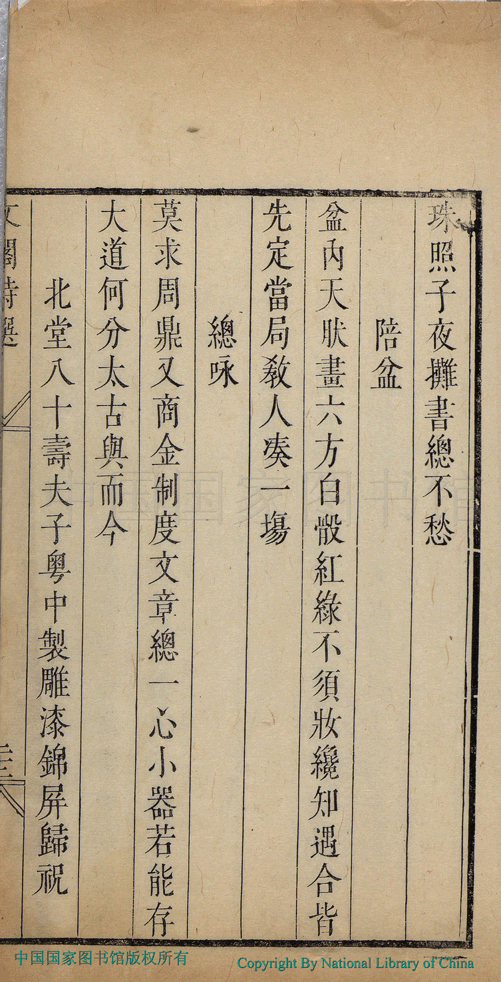 珠照子夜攤書總不愁
陪盆
盆內天狀畫六方白骰紅綠不須妝纔知遇合皆
先定當局敎人凑一塲
總咏
莫求周鼎又商金制度文章總一心小器若能存
大道何分太古與而今
北堂八十壽夫子粤中製雕漆錦屏歸祝
文閣詩選
中国国家图书馆
中国国家图书馆版权所有
Copyright By National Library of China